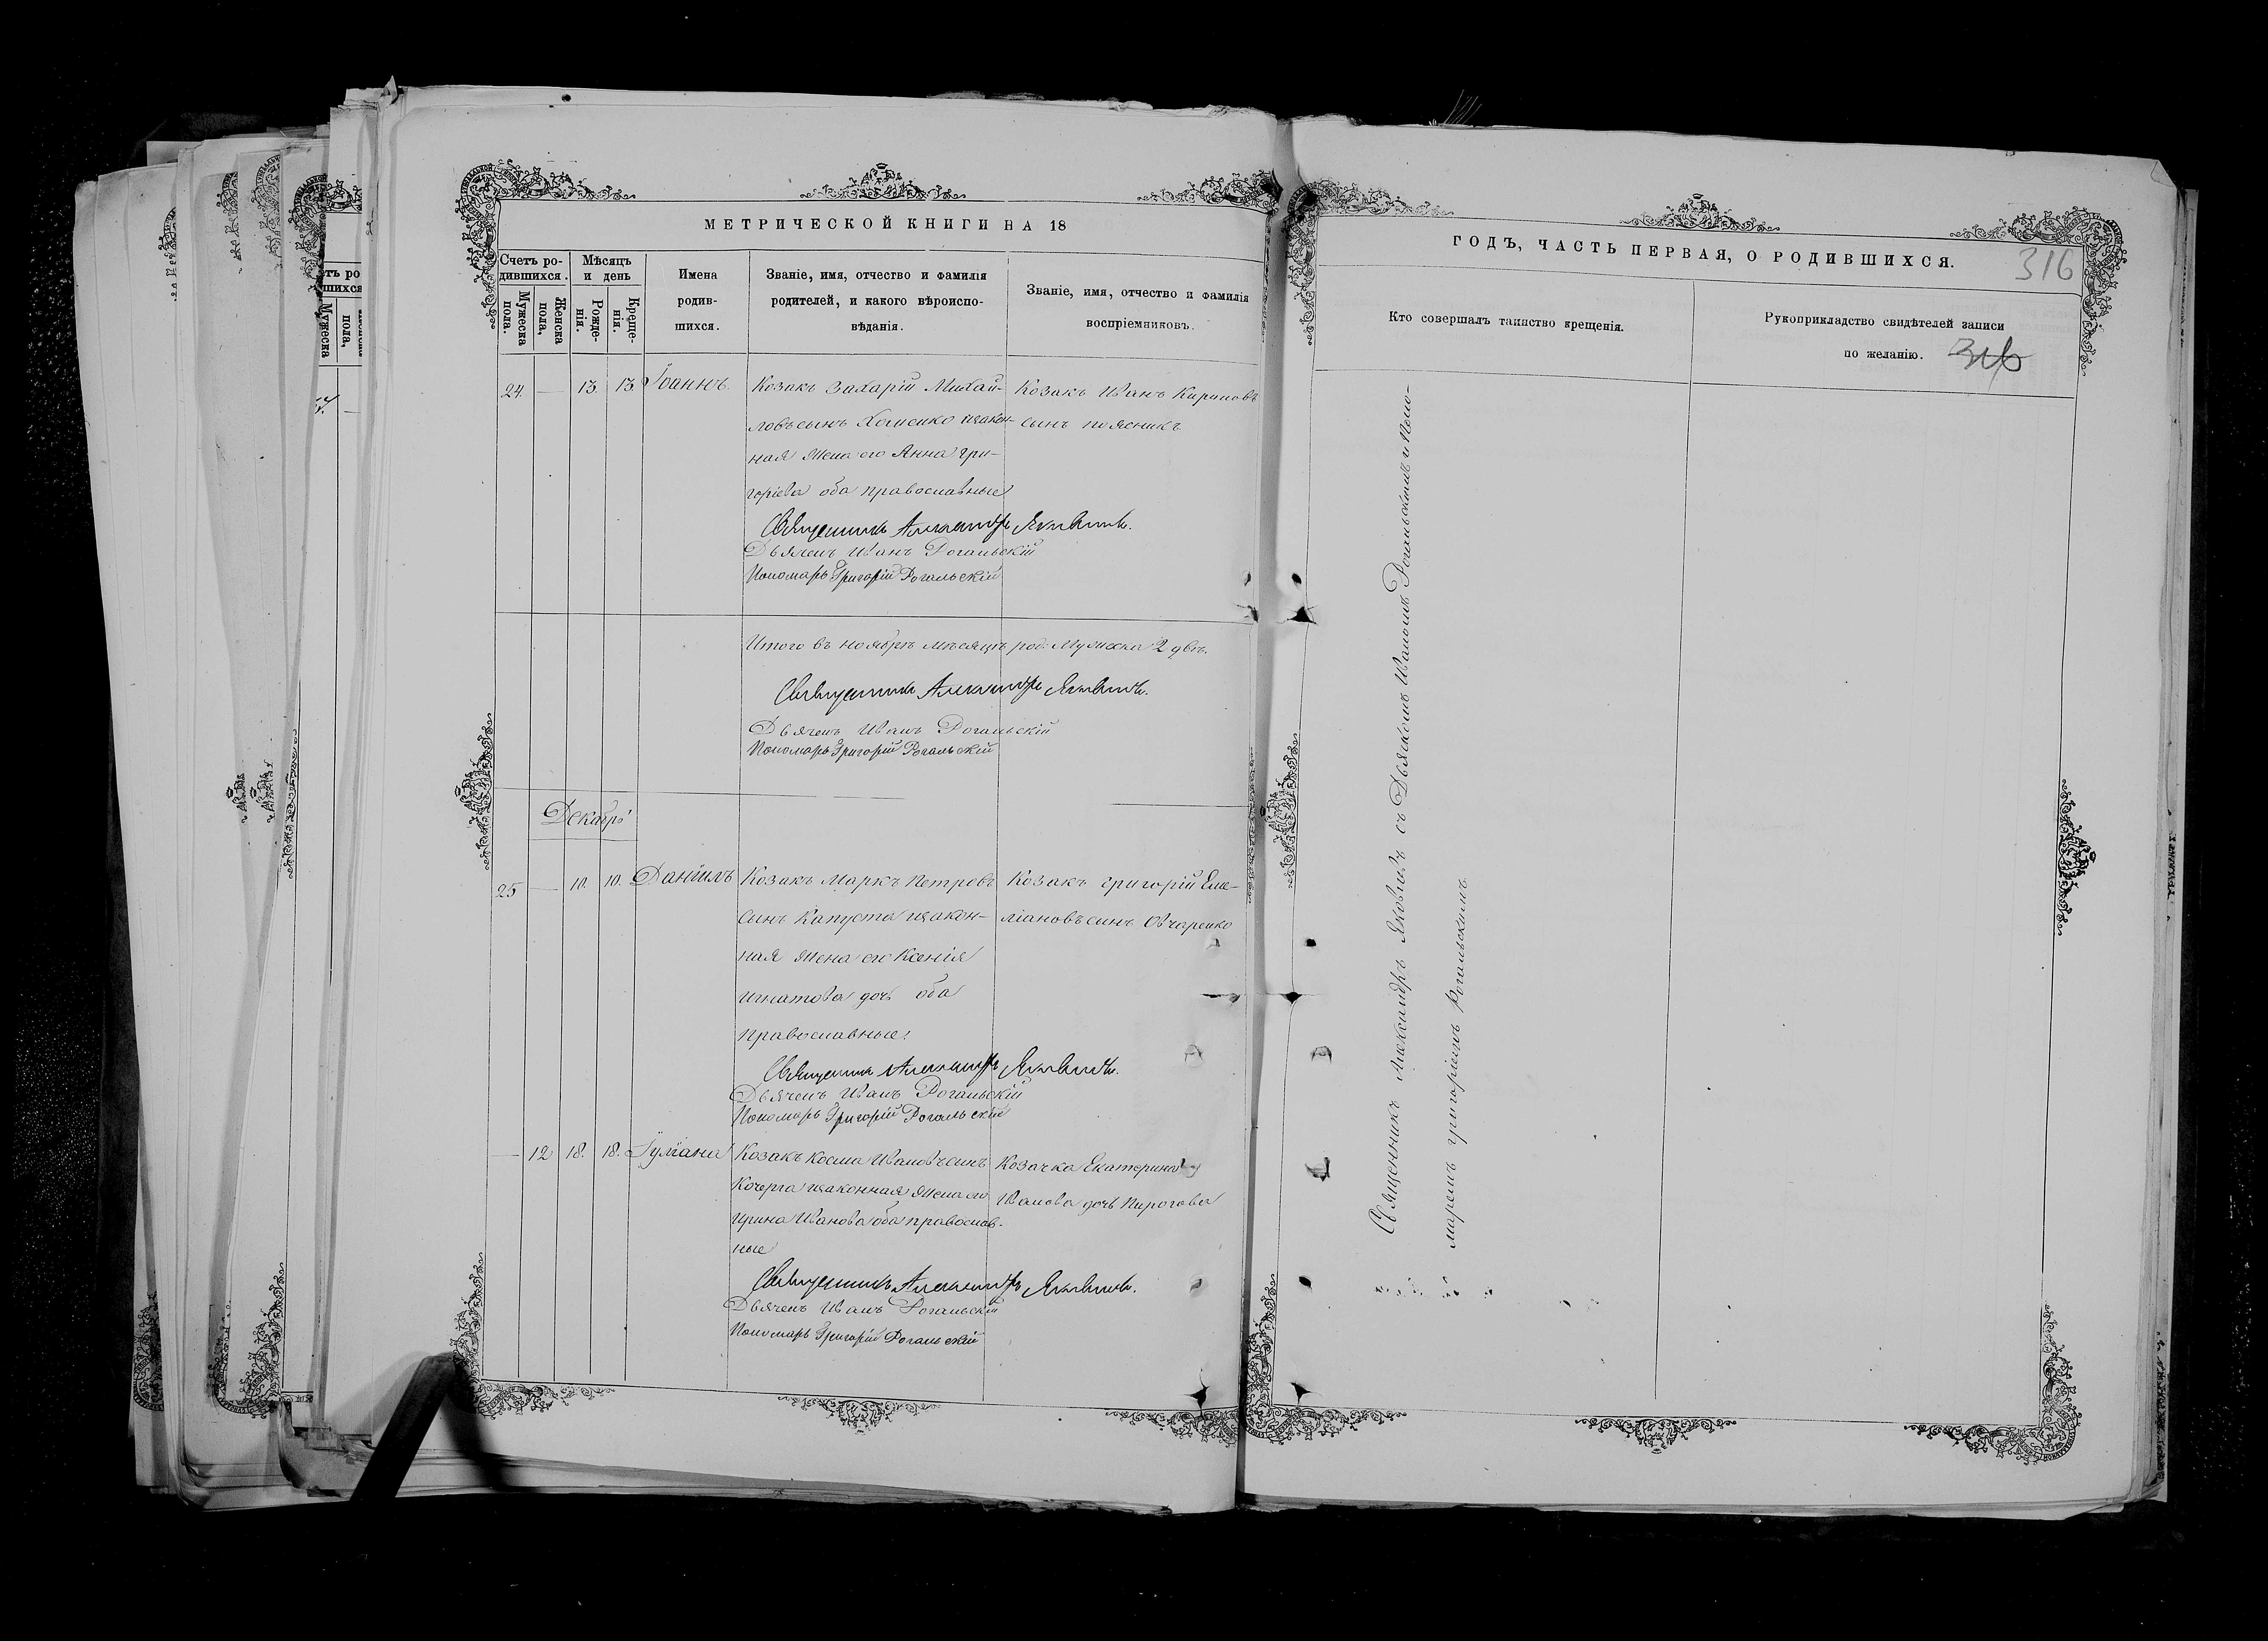 МЕТРИЧЕСКОЙ КНИГИ НА 18
Счетъ ро-
дившихся.
Мужеска
пола.
Женска
пола,
Мѣсяцъ
и день
Рожде-
нія.
Креще-
нія.
Имена
родив-
шихся.
Званіе, имя, отчество и фамилія
родителей, и какого вѣроиспо-
вѣданія.
Званіе, имя, отчество и фамилія
воспріемниковъ.
24. — 13. 13. Іоаннъ.
Козакъ Захарій Михай-
ловъ сынъ Хоменко изакон-
ная жена его Анна Гри-
горіева оба православные
Козакъ Иванъ Кириловъ
сынъ поясникъ
Священникъ Александръ Яковичъ.
Дьячекъ Иванъ Рогальскій
Пономарь Григорій Рогальскій
Итого въ ноябрѣ мѣсяцѣ род. Мужеска 2 двѣ.
Священникъ Александръ Яковичъ.
Дьячекъ Иванъ Рогальскій
Пономарь Григорій Рогальскій
Декабрь
25 — 10. 10. Даніилъ
Козакъ Маркъ Петровъ
сынъ Капуста изакон-
ная жена его Ксенія
Игнатова дочь оба
православные:
Козакъ Григорій Еме-
ліановъ сынъ Овчаренко
Священникъ Александръ Яковичъ.
Дьячекъ Иванъ Рогальскій
Пономарь Григорій Рогальскій
— 12 18. 18. Іуліана
Козакъ Косма Ивановъ сынъ
Кочерга изаконная жена его
Ирина Иванова оба православ-
ные
Козачка Екатерина
Иванова дочь Пирогова
Священникъ Александръ Яковичъ.
Дьячекъ Иванъ Рогальскій
Пономарь Григорій Рогальскій
ГОДЪ, ЧАСТЬ ПЕРВАЯ, О РОДИВШИХСЯ.
316
Кто совершалъ таинство крещенія.
Рукоприкладство свидѣтелей записи
по желанію.
316
Священникъ Александръ Яковичъ съ Дьячкомъ Иваномъ Рогальскимъ и Поно-
маремъ Григоріемъ Рогальскимъ